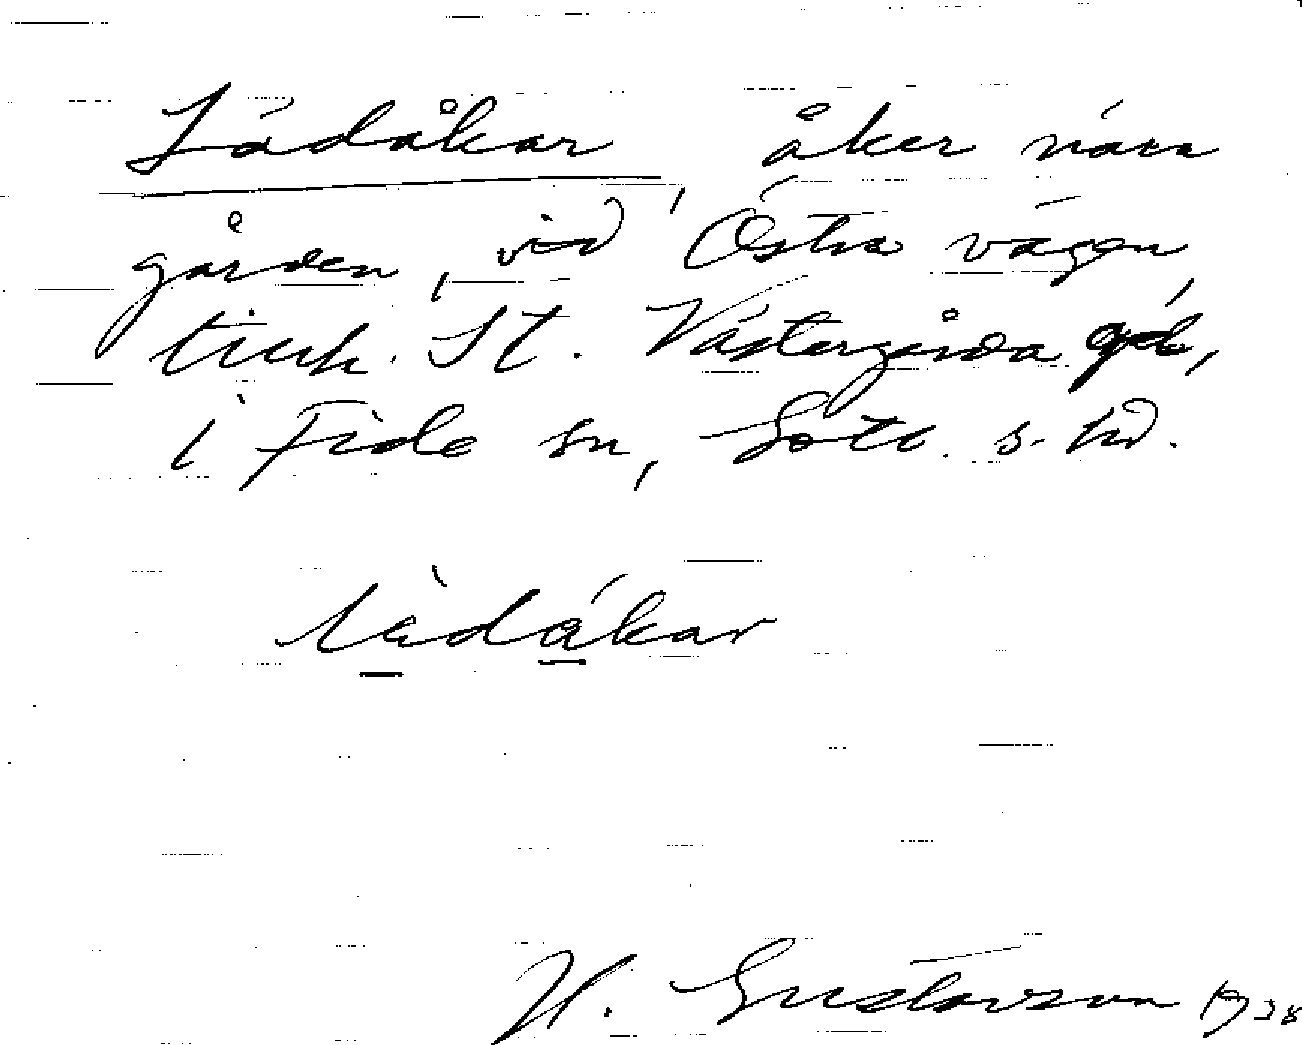 Lädåkar, åker nära
gården, vid Östra vägen,
tillh. St. Västergårda gd,
i Fide sn, Gotl. s. hd.
làdákar
H. Gustavson 1938